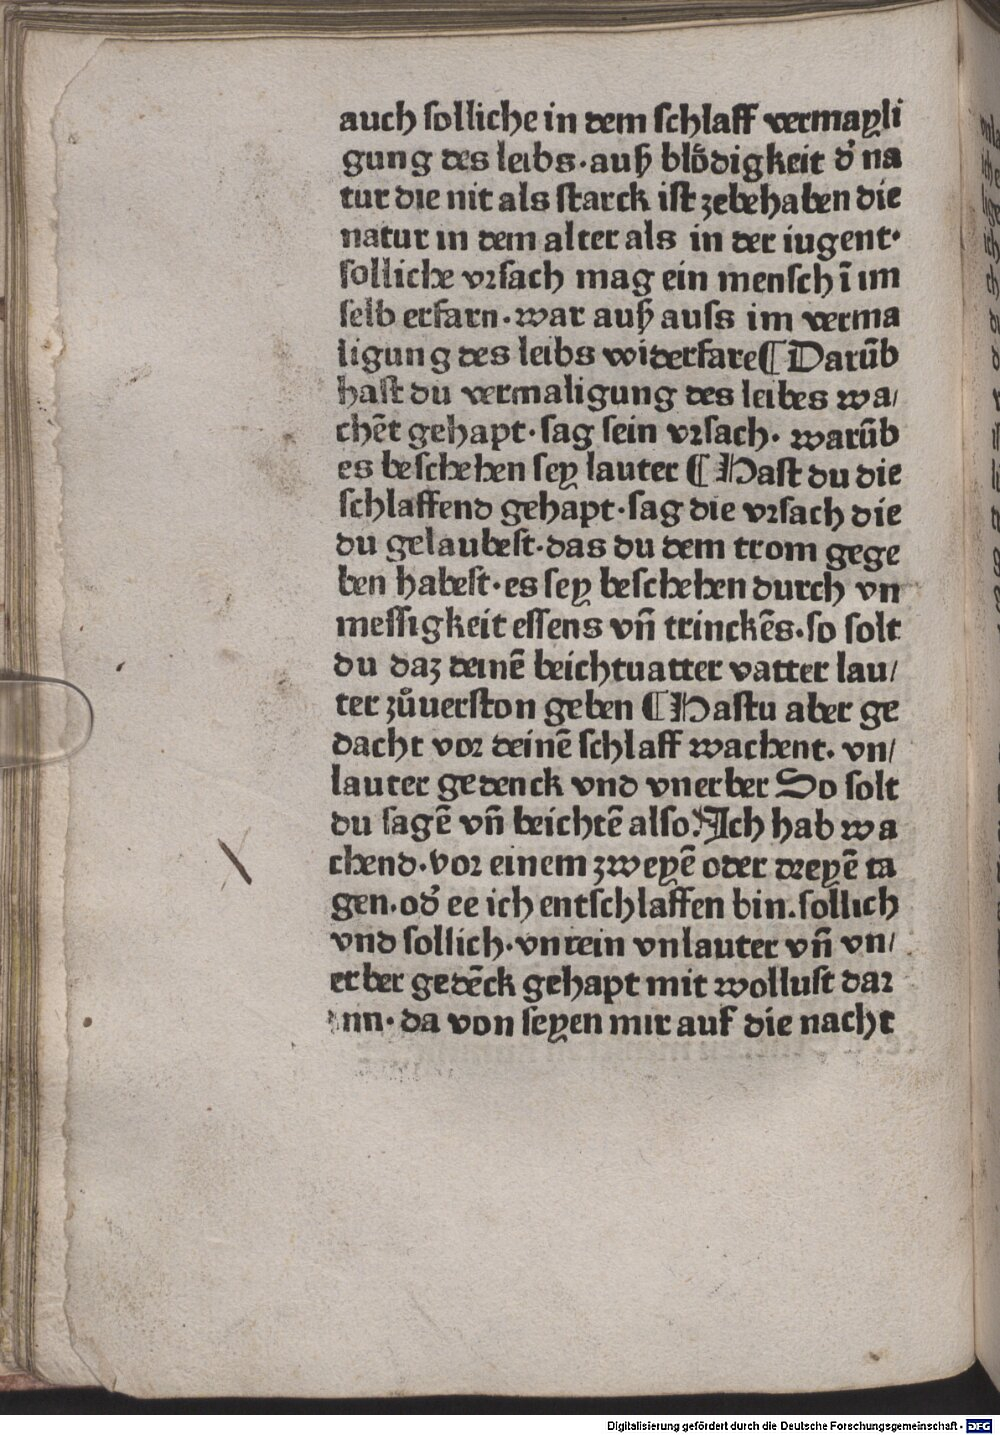 auch ſolliche in dem ſchlaff vermayli
gung des leibs · auß blödigkeit d' na
tur die nit als ſtarck iſt zebehaben die
natur in dem alter als in der iugent ·
ſolliche vꝛſach mag ein menſch ī im
ſelb erfarn · war auß auſs im verma
ligung des leibs widerfare ¶ Darūb
haſt du vermaligung des leibes wa/
chēt gehapt · ſag ſein vꝛſach · warūb
es beſchehen ſey lauter ¶ Haſt du die
ſchlaffend gehapt · ſag die vꝛſach die
du gelaubeſt · das du dem trom gege
ben habeſt · es ſey beſchehen durch vn
meſſigkeit eſſens vn̄ trinckēs · ſo ſolt
du daz deinē beichtuatter vatter lau/
ter zůuerſton geben ¶ Haſtu aber ge
dacht voꝛ deinē ſchlaff wachent · vn/
lauter gedenck vnd vnerber So ſolt
du ſagē vn̄ beichtē alſo. Ich hab wa
chend · voꝛ einem zweyē oder dreyē ta
gen · od' ee ich entſchlaffen bin · ſollich
vnd ſollich · vnrein vnlauter vn̄ vn/
erber gedēck gehapt mit wolluſt daꝛ
inn · da von ſeyen mir auf die nacht
Digitalisierung gefördert durch die Deutsche Forschungsgemeinschaft - DFG